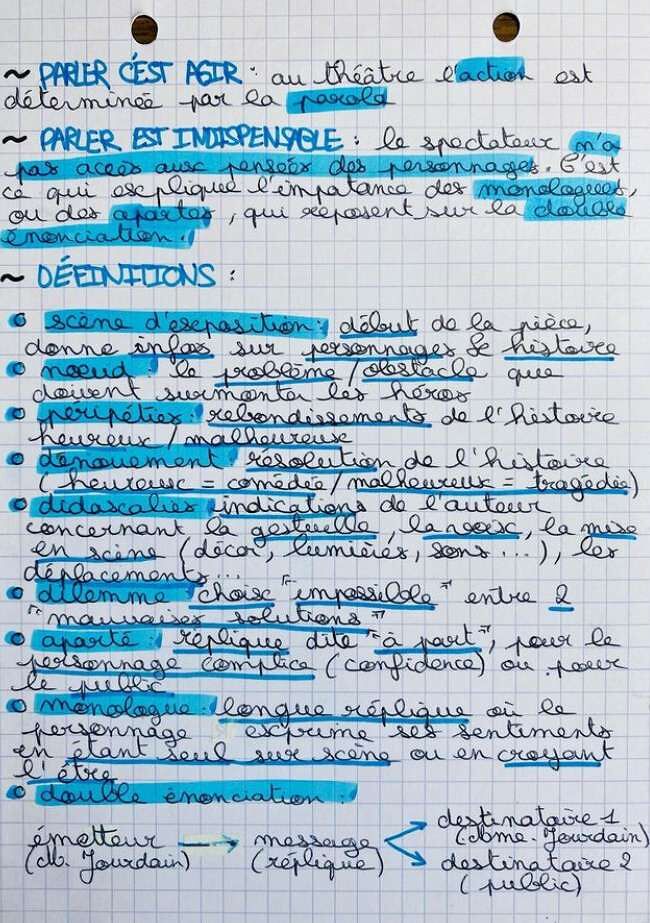 ~ PARLER C'EST AGIR : au théâtre l'action est
déterminée par la parole
~ PARLER EST INDISPENSABLE : le spectateur n'a
pas accès aux pensées des personnages. C'est
ce qui explique l'impatance des monologues,
ou des apartes, qui reposent sur la double
énonciation.
~ DÉFINITIONS :
• scène d'exposition : début de la pièce,
donne infos sur personnages & histoire
• nœud : le problème / obstacle que
doivent surmonter les héros
• péripéties : rebondissements de l'histoire
heureux / malheureuse
• dénouement résolution de l'histoire
(heureux = comédie / malheureux = tragédie)
• didascalies indications de l'auteur
concernant la gestuelle, la voix, la mise
en scène (décor, lumières, sons ...), les
déplacements...
• dilemme choix "impossible" entre 2
"mauvaises solutions"
• aparté : réplique dite "à part", pour le
personnage complice (confidence) ou pour
le public
• monologue : longue réplique où le
personnage exprime ses sentiments
en étant seul sur scène ou en croyant
l'être
• double énonciation :
émetteur → message → destinataire 1
(M. Jourdain) (réplique) (Mme. Jourdain)
destinataire 2
(public)